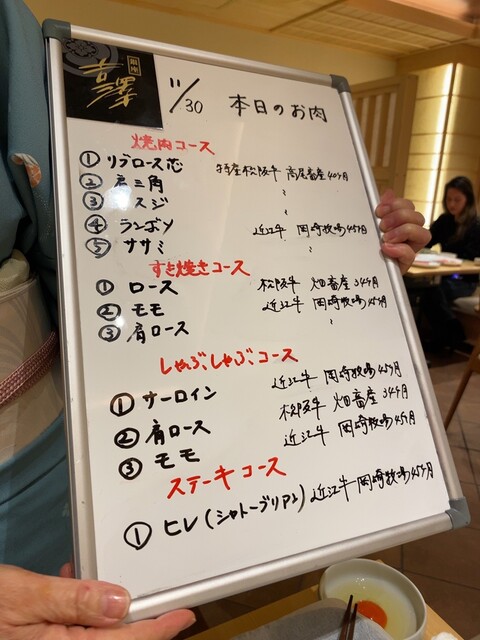 銀座
吉澤
11/30 本日のお肉
焼肉コース
① リブロース芯 特産松阪牛 高尾畜産40ヶ月
② 肩三角 〃
③ スジ 〃
④ ランボソ 近江牛 岡崎牧場45ヶ月
⑤ ササミ 〃
すき焼きコース
① ロース 松阪牛 畑畜産34ヶ月
② モモ 近江牛 岡崎牧場45ヶ月
③ 肩ロース 〃
しゃぶしゃぶコース
① サーロイン 近江牛 岡崎牧場45ヶ月
② 肩ロース 松阪牛 畑畜産 34ヶ月
③ モモ 近江牛 岡崎牧場45ヶ月
ステーキコース
① ヒレ(シャトーブリアン) 近江牛岡崎牧場45ヶ月